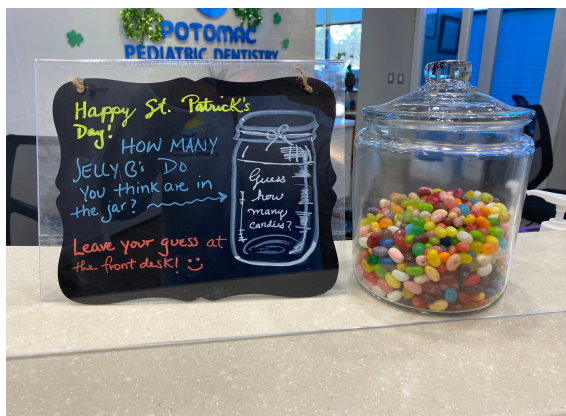 POTOMAC
PEDIATRIC DENTISTRY
Happy St. Patrick's
Day!
HOW MANY
JELLY B's DO
YOU think are in
the jar?
Guess
how
many
candies?
Leave your guess at
the front desk!